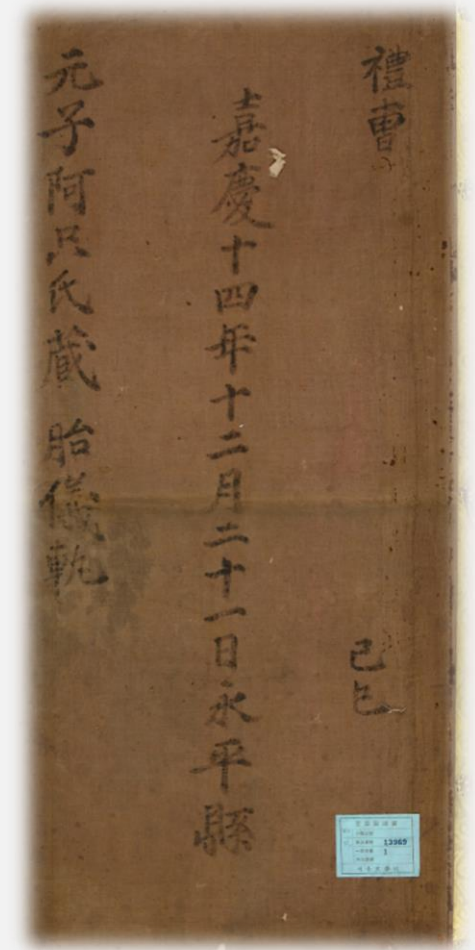 禮曹
己巳
嘉慶十四年十二月二十一日永平縣
元子阿只氏藏 胎儀軌
13969
1